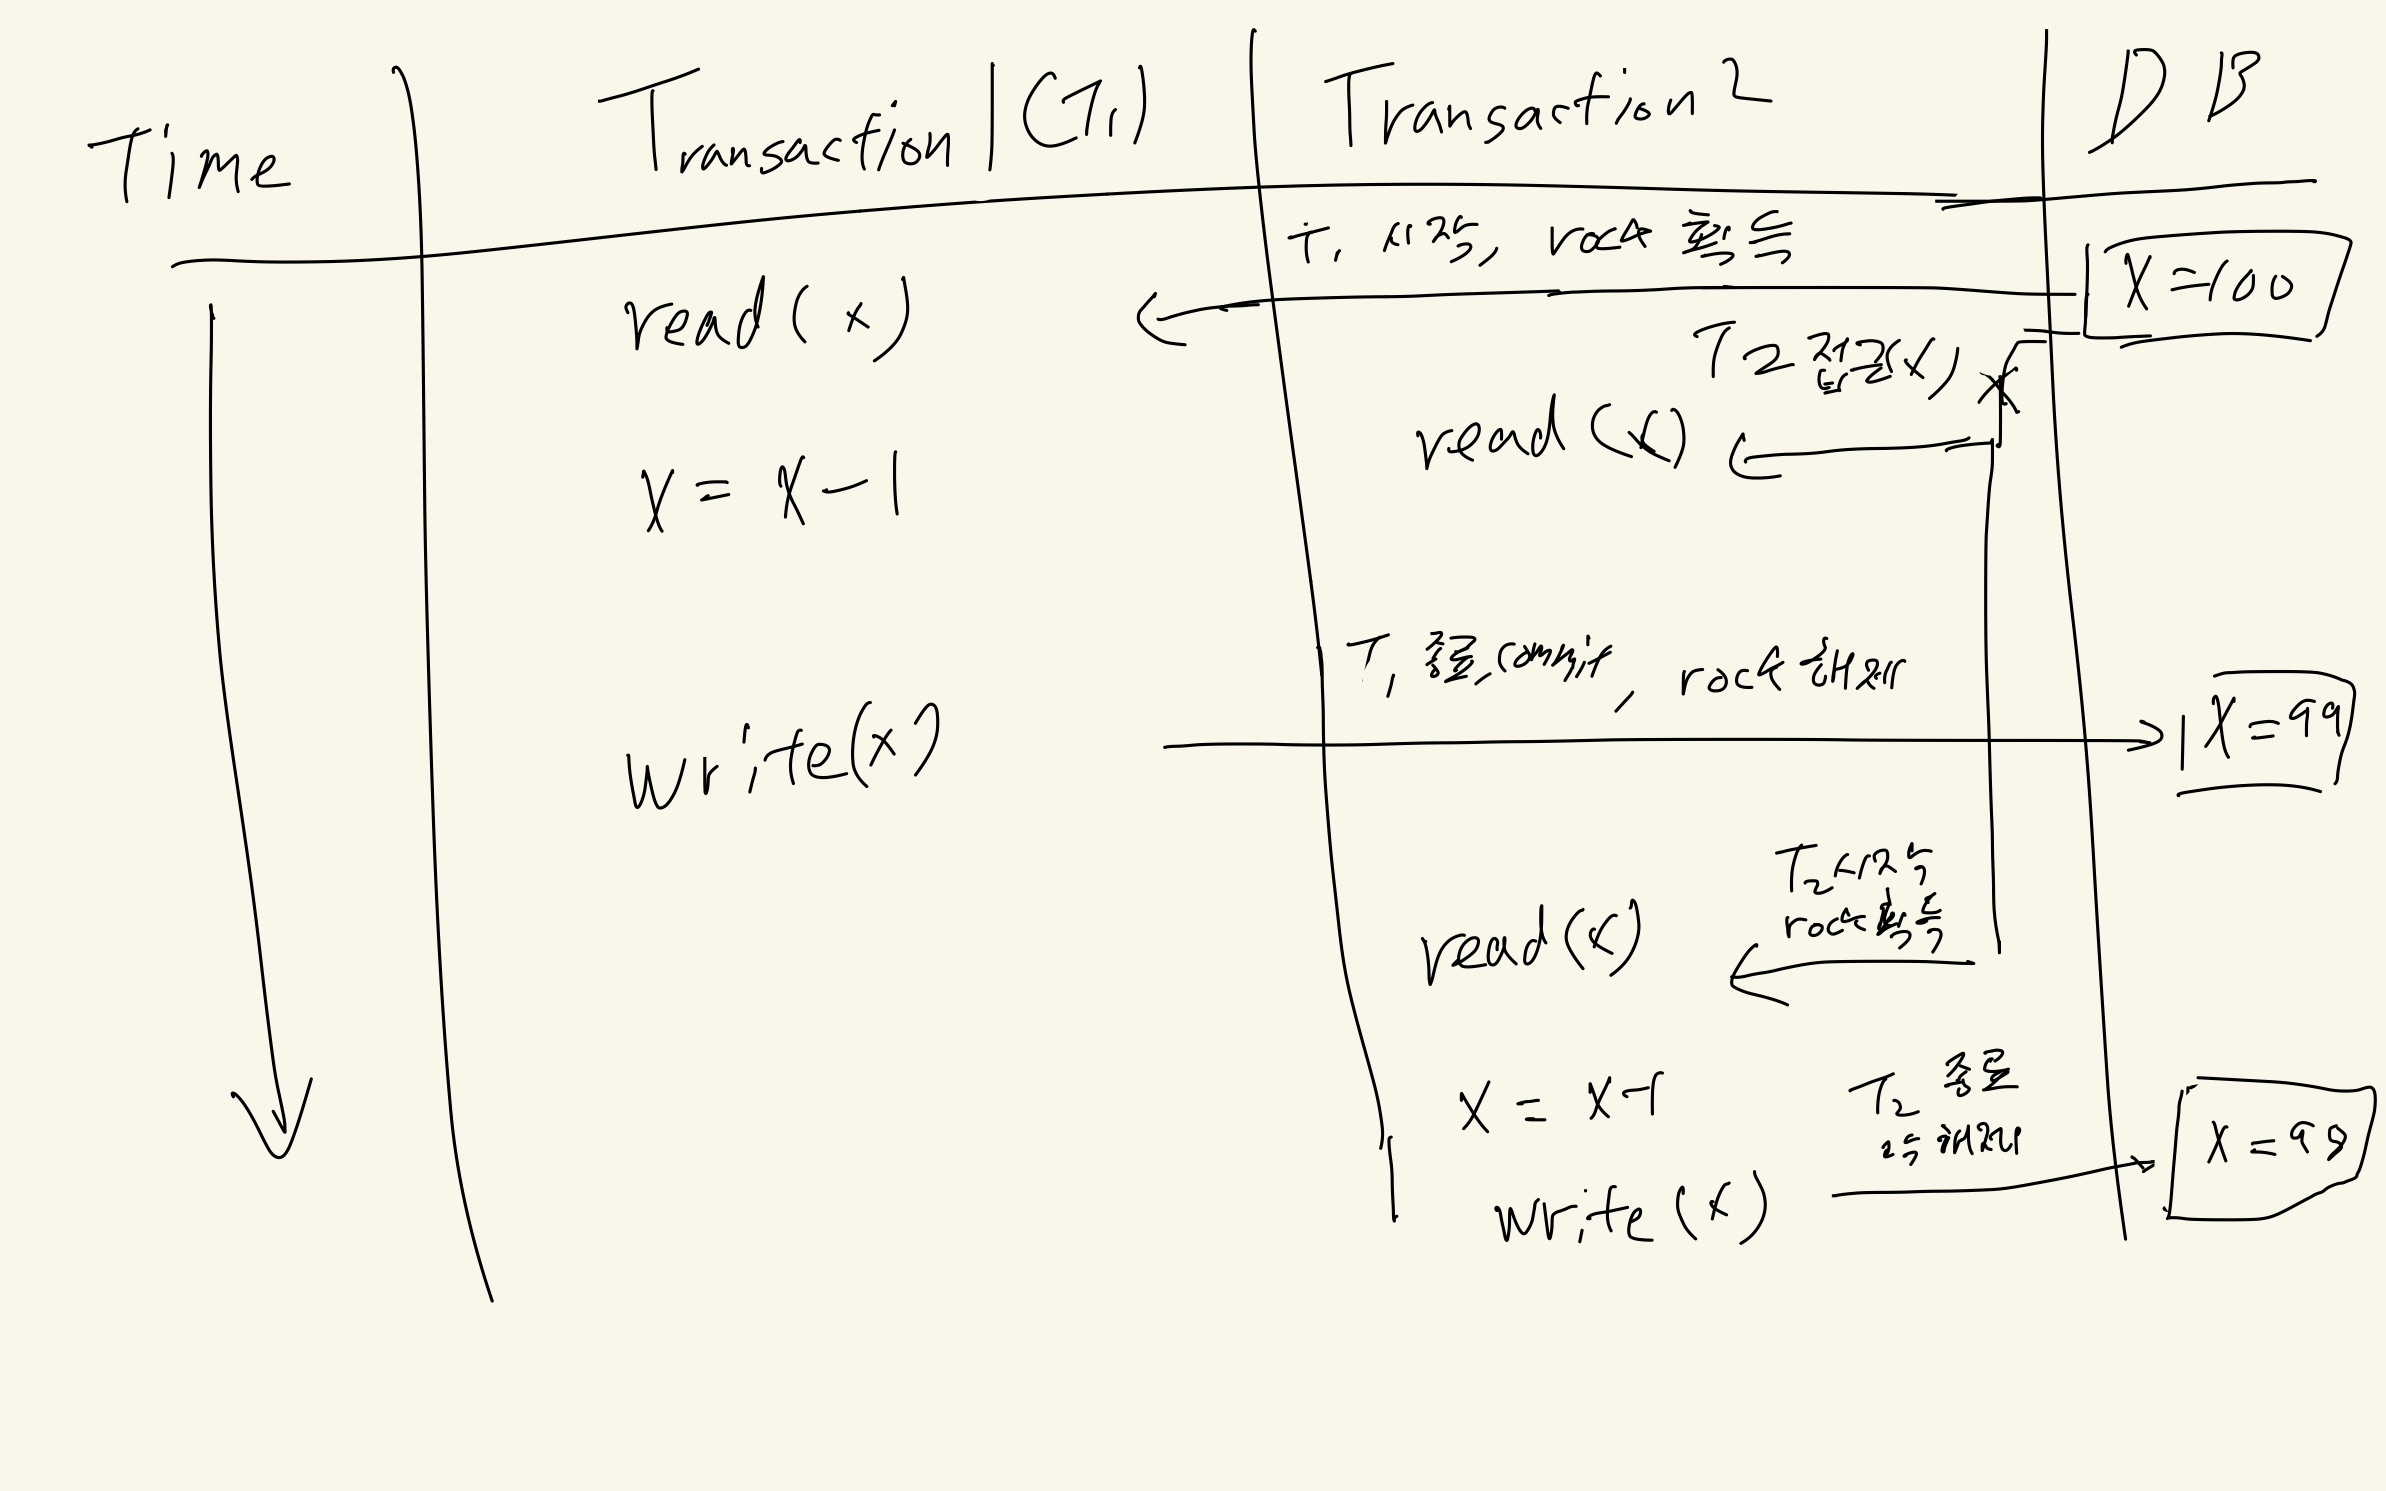 Time
Transaction 1 (T1)
Transaction 2
DB
T1 시작, rock 획득
X = 100
read(x)
T2 접근(x)
read(x)
X = X - 1
T1 종료, commit, rock 해제
write(x)
X = 99
T2 시작
rock 획득
read(x)
X = X - 1
T2 종료
락 해제
write(x)
X = 98